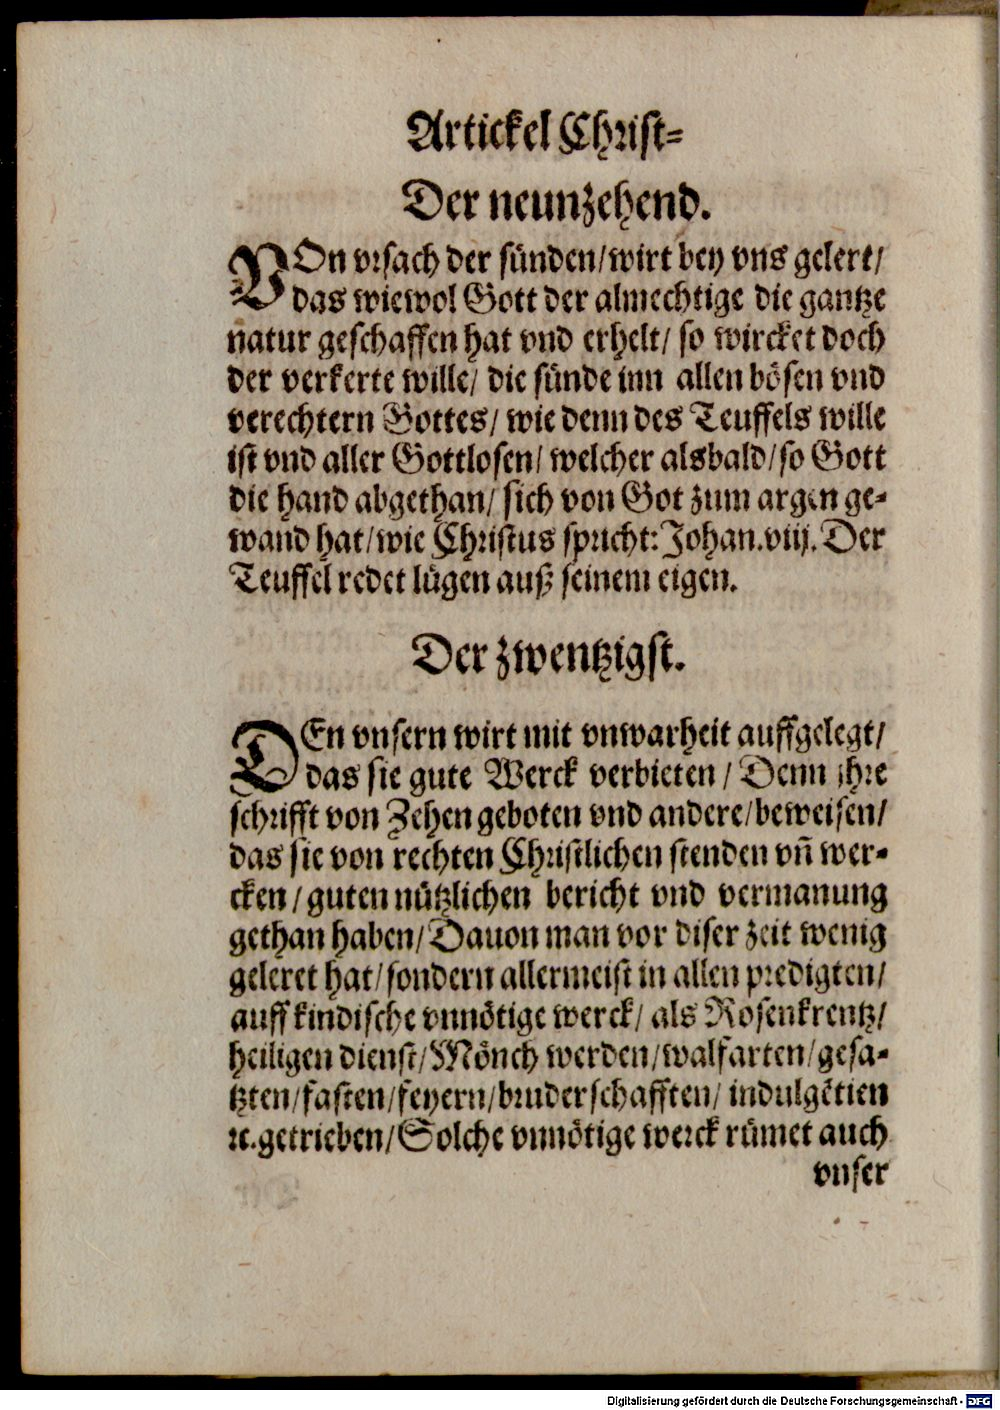 Artickel Christ-
Der neunzehend.
VOn vrsach der sünden/wirt bey vns gelert/
das wiewol Gott der almechtige die gantze
natur geschaffen hat vnd erhelt/ so wircket doch
der verkerte wille/ die sünde inn allen bösen vnd
verechtern Gottes/ wie denn des Teuffels wille
ist vnd aller Gottlosen/ welcher alsbald/so Gott
die hand abgethan/ sich von Got zum argen ge-
wand hat/wie Christus spricht: Johan.viij. Der
Teuffel redet lügen auß seinem eigen.
Der zwentzigst.
DEn vnsern wirt mit vnwarheit auffgelegt/
das sie gute Werck verbieten / Denn ihre
schrifft von Zehen geboten vnd andere/beweisen/
das sie von rechten Christlichen stenden vñ wer-
cken / guten nützlichen bericht vnd vermanung
gethan haben/Dauon man vor diser zeit wenig
geleret hat/sondern allermeist in allen predigten/
auff kindische vnnötige werck/ als Rosenkrentz/
heiligen dienst/Mönch werden/walfarten/gesa-
tzten/fasten/feyern/bruderschafften/ indulgētien
ꝛc.getrieben/Solche vnnötige werck rümet auch
vnser
Digitalisierung gefördert durch die Deutsche Forschungsgemeinschaft - DFG